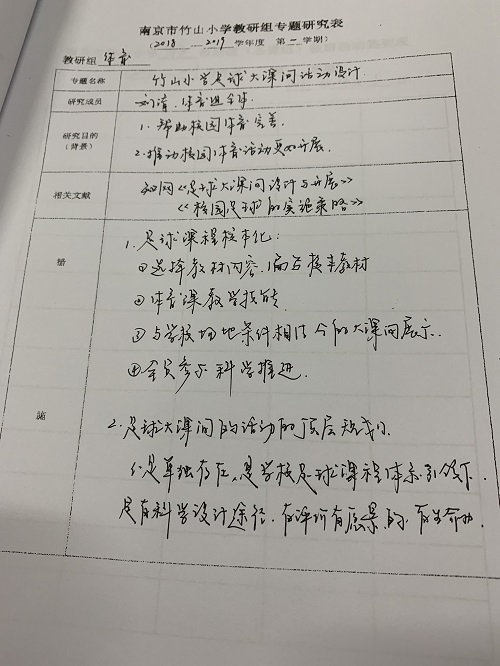 南京市竹山小学教研组专题研究表
（2018 — 2019 学年度 第二学期）
教研组 体育
专题名称 竹山小学足球大课间活动设计
研究成员 刘清、体育组全体
研究目的（背景） 1. 帮助校园体育完善.
2. 推动校园体育活动更加开展.
相关文献 知网《足球大课间设计与开展》
《校园足球的实施策略》
措
1. 足球课程校本化：
①选择教材内容、编写校本教材
②体育课教学技能
③与学校场地条件相结合的大课间展示.
④全员参与科学推进.
施
2. 足球大课间的活动的顶层规划.
不是单独存在，是学校足球课程体系引领下
是有科学设计途径、有评价有愿景的、有生命力